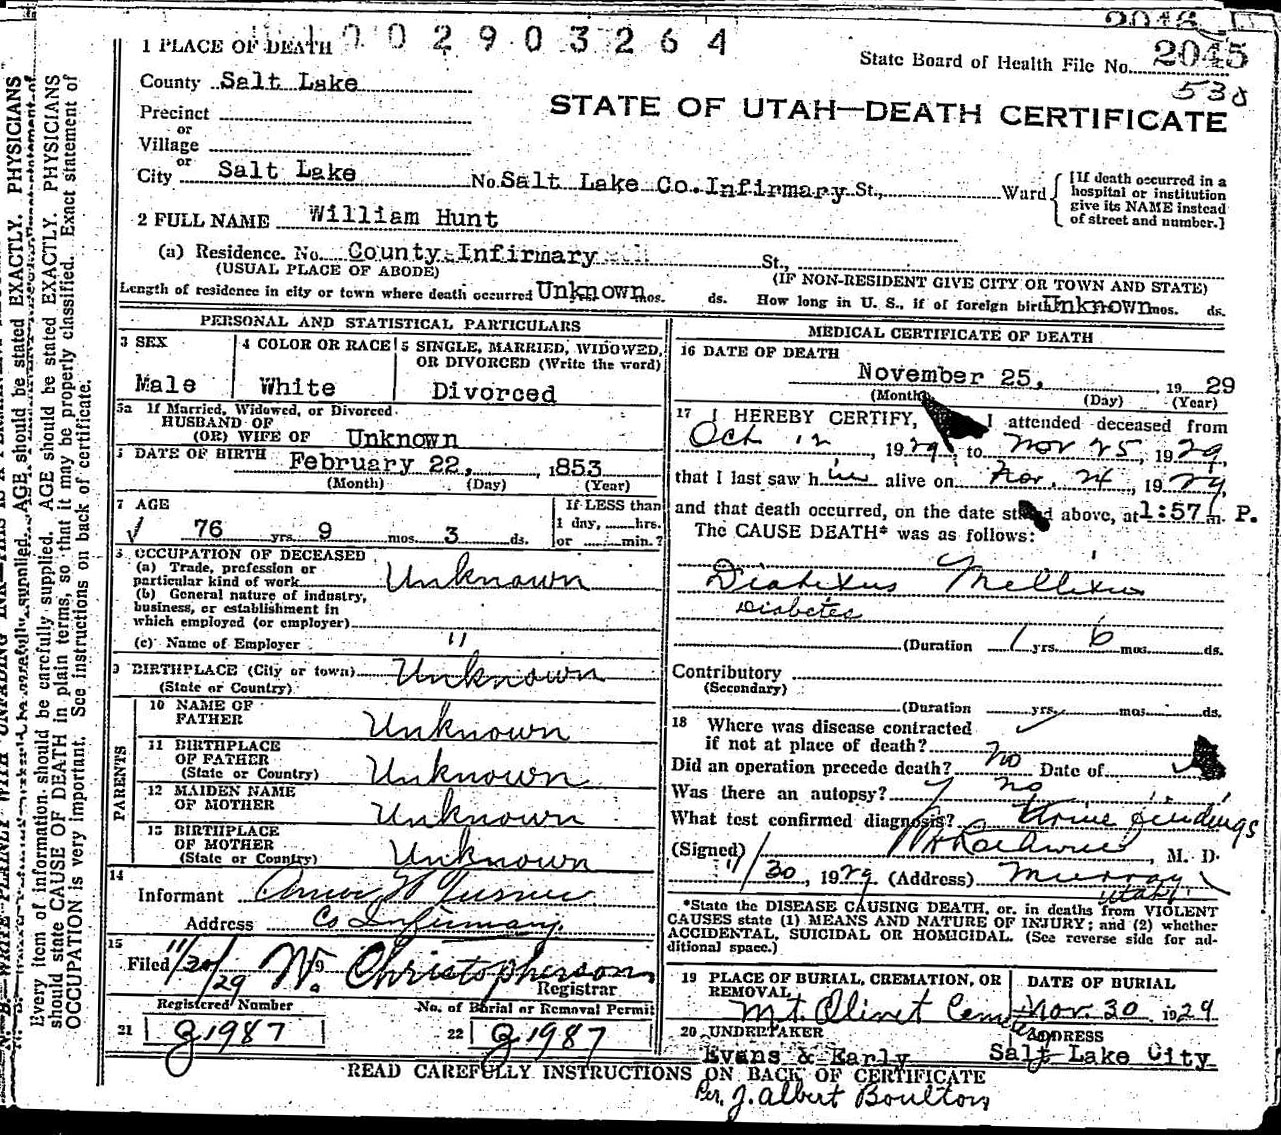 1002903264
2046
1 PLACE OF DEATH
State Board of Health File No. 2045
530
County Salt Lake
STATE OF UTAH—DEATH CERTIFICATE
Precinct
or
Village
or
City Salt Lake No. Salt Lake Co. Infirmary St., Ward
[If death occurred in a hospital or institution give its NAME instead of street and number.]
2 FULL NAME William Hunt
(a) Residence. No. County Infirmary St.,
(USUAL PLACE OF ABODE) (IF NON-RESIDENT GIVE CITY OR TOWN AND STATE)
Length of residence in city or town where death occurred Unknown mos. ds. How long in U. S., if of foreign birth Unknown mos. ds.
PERSONAL AND STATISTICAL PARTICULARS
3 SEX
Male
4 COLOR OR RACE
White
5 SINGLE, MARRIED, WIDOWED,
OR DIVORCED (Write the word)
Divorced
5a If Married, Widowed, or Divorced
HUSBAND OF
(OR) WIFE OF Unknown
DATE OF BIRTH February 22, 1853
(Month) (Day) (Year)
7 AGE
If LESS than
1 day, hrs.
or min.?
76 yrs. 9 mos. 3 ds.
OCCUPATION OF DECEASED
(a) Trade, profession or
particular kind of work Unknown
(b) General nature of industry,
business, or establishment in
which employed (or employer)
(c) Name of Employer "
9 BIRTHPLACE (City or town) Unknown
(State or Country)
PARENTS
10 NAME OF
FATHER Unknown
11 BIRTHPLACE
OF FATHER
(State or Country) Unknown
12 MAIDEN NAME
OF MOTHER Unknown
13 BIRTHPLACE
OF MOTHER
(State or Country) Unknown
14
Informant
Address Co Infirmary
15
Filed 11/30/29 Wm. Christopherson
Registrar
Registered Number No. of Burial or Removal Permit
21 G1987 22 G1987
MEDICAL CERTIFICATE OF DEATH
16 DATE OF DEATH
November 25, 1929
(Month) (Day) (Year)
17 I HEREBY CERTIFY, I attended deceased from
Oct 12, 1929, to Nov 25, 1929,
that I last saw him alive on Nov. 24, 1929,
and that death occurred, on the date stated above, at 1:57 m. P.
The CAUSE DEATH* was as follows:
Diabetus Mellitus
Diabetes
(Duration 1 yrs. 6 mos. ds.
Contributory
(Secondary)
(Duration yrs. mos. ds.
18 Where was disease contracted
if not at place of death?
Did an operation precede death? No Date of
Was there an autopsy? no
What test confirmed diagnosis? Urine findings
(Signed) , M. D.
11/30, 1929 (Address) Murray
Utah
*State the DISEASE CAUSING DEATH, or, in deaths from VIOLENT
CAUSES state (1) MEANS AND NATURE OF INJURY; and (2) whether
ACCIDENTAL, SUICIDAL OR HOMICIDAL. (See reverse side for ad-
ditional space.)
19 PLACE OF BURIAL, CREMATION, OR
REMOVAL
Mt. Olivet Cemetery
DATE OF BURIAL
Nov. 30 1929
20 UNDERTAKER
Evans & Early
ADDRESS
Salt Lake City
READ CAREFULLY INSTRUCTIONS ON BACK OF CERTIFICATE
Per. J. Albert Boulton
Every item of information should be carefully supplied. AGE should be stated EXACTLY. PHYSICIANS
should state CAUSE OF DEATH in plain terms, so that it may be properly classified. Exact statement of
OCCUPATION is very important. See instructions on back of certificate.